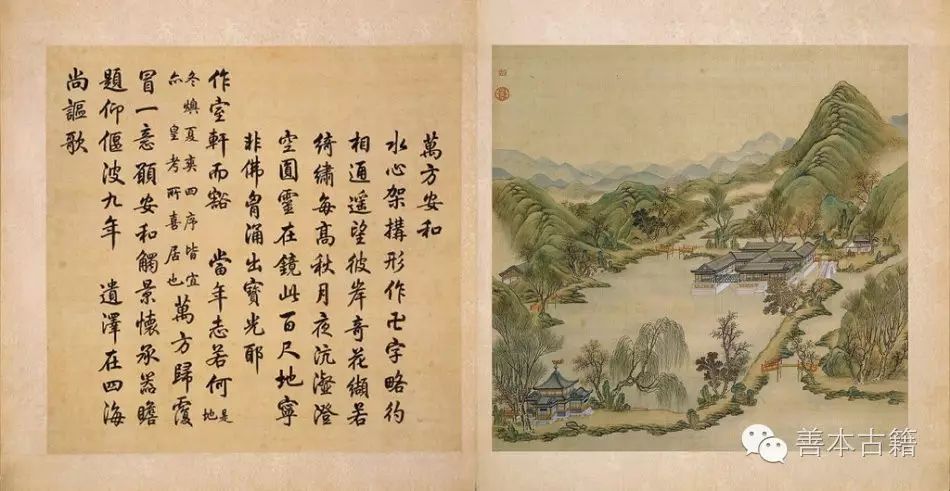 萬方安和
水心架構形作卍字略彴
相通遥望彼岸奇花纈若
綺繡每高秋月夜沆瀣澄
空圓靈在鏡此百尺地寧
非佛胷涌出寶光耶
作室軒而豁 當年志若何 是地
冬燠夏爽四序皆宜亦 皇考所喜居也 萬方歸覆
冒一意願安和觸景懷承器瞻
題仰偃波九年 遺澤在四海
尚謳歌
善本古籍